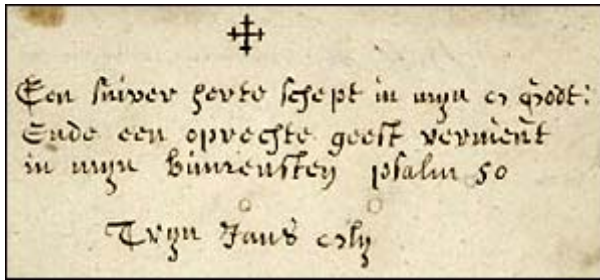 Een suiver herte schept in mijn O Godt:
Ende een oprechte geest vernieut
in mijn binnensten psalm 50
Tryn Jans Oly